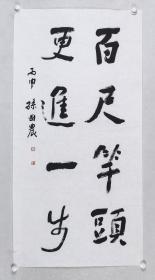 百尺竿頭
更進一步
丙申 孫國農